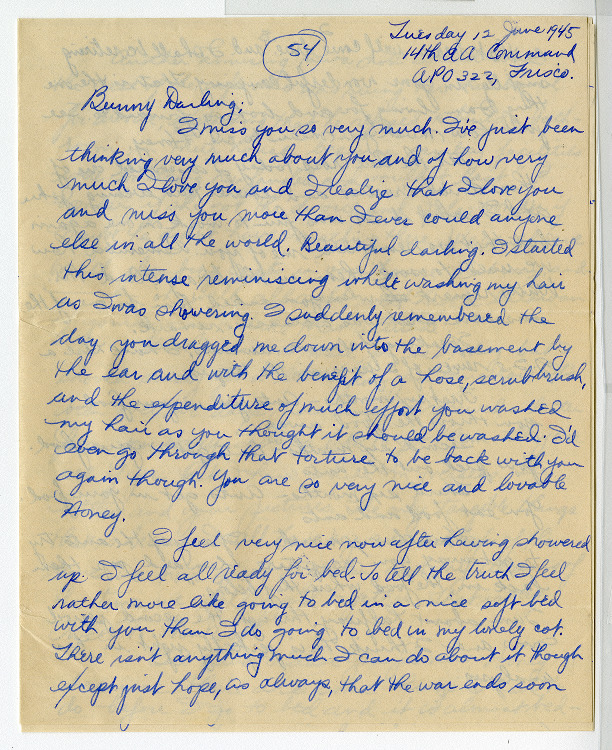 54
Tuesday 12 June 1945
14th AA Command
APO 322, Frisco.
Bunny Darling;
I miss you so very much. I've just been
thinking very much about you and of how very
much I love you and I realize that I love you
and miss you more than I ever could anyone
else in all the world. Beautiful darling. I started
this intense reminiscing while washing my hair
as I was showering. I suddenly remembered the
day you dragged me down into the basement by
the ear and with the benefit of a hose, scrub brush,
and the expenditure of much effort you washed
my hair as you thought it should be washed. I'd
even go through that torture to be back with you
again though. You are so very nice and lovable
Honey.
I feel very nice now after having showered
up. I feel all ready for bed. To tell the truth I feel
rather more like going to bed in a nice soft bed
with you than I do going to bed in my lonely cot.
There isn't anything much I can do about it though
except just hope, as always, that the war ends soon